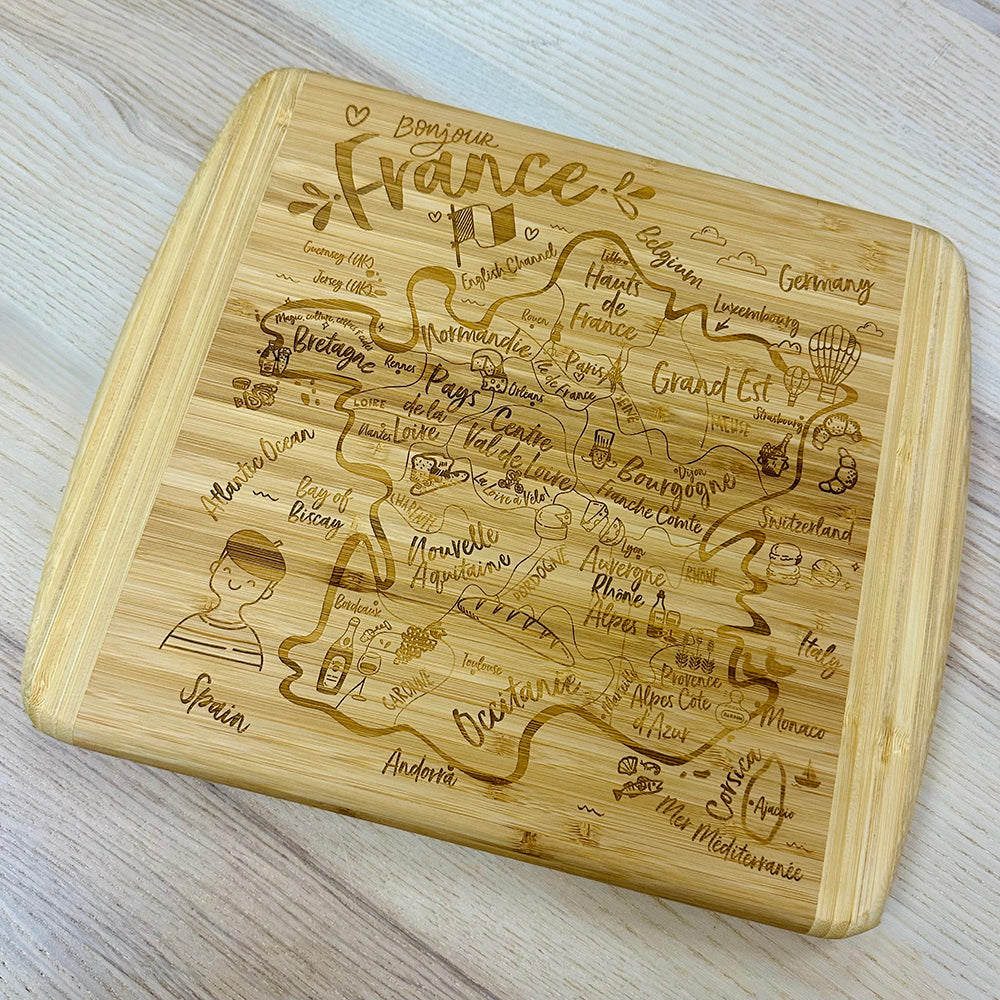 Bonjour
France
Guernsey (UK)
Jersey (UK)
English Channel
Belgium
Germany
Luxembourg
Lille
Hauts
de
France
Rouen
Normandie
Paris
Île de France
Grand Est
Strasbourg
MEUSE
Bretagne
Rennes
Pays
de la
Loire
LOIRE
Nantes
Orléans
Centre
Val de Loire
La
Loire à Vélo!
Dijon
Bourgogne
Franche Comté
Switzerland
Atlantic Ocean
Bay of
Biscay
Nouvelle
Aquitaine
DORDOGNE
Lyon
Auvergne
Rhône
Alpes
RHÔNE
Italy
Bordeaux
GARONNE
Toulouse
Occitanie
Marseille
Provence
Alpes Côte
d'Azur
Monaco
Spain
Andorra
Corsica
Ajaccio
Mer Méditerranée